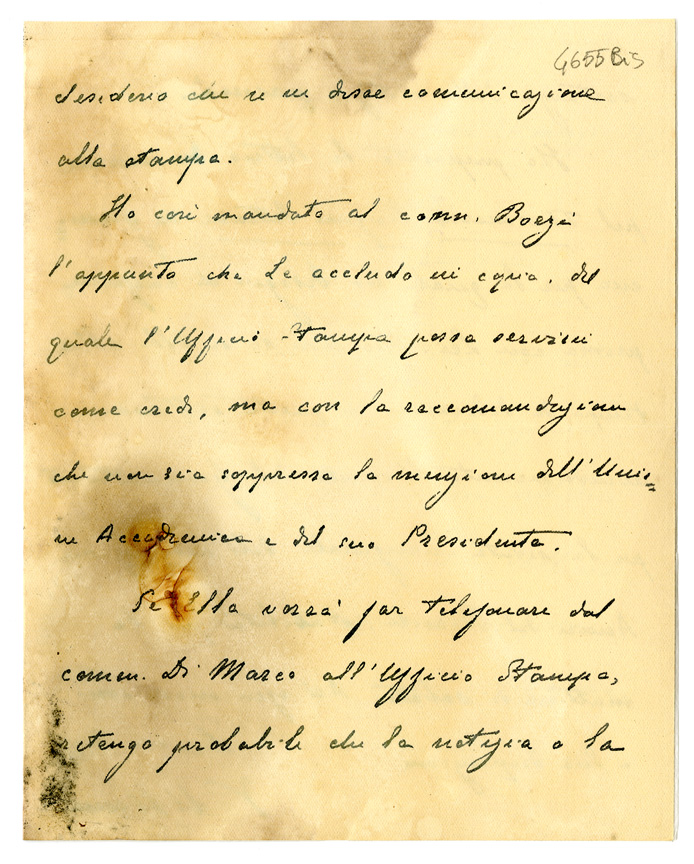 4655 Bis
desiderio che se ne desse comunicazione
alla stampa.
Ho così mandato al comm. Boezi
l'appunto che Le accludo in copia, del
quale l'Ufficio Stampa possa servirsi
come creda, ma con la raccomandazione
che non sia soppressa la menzione dell'Unio=
ne Accademica e del suo Presidente.
Se Ella vorrà far telefonare dal
comm. Di Marzo all'Ufficio Stampa,
ritengo probabile che la notizia o la